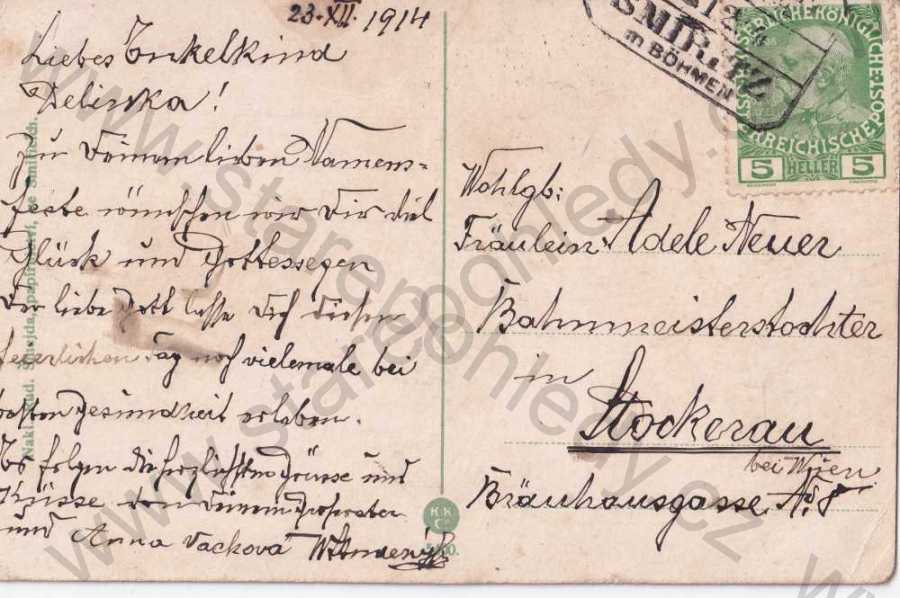 23. XII. 1914
Liebes Enkelkind
Delinka!
Zu Deinem lieben Namens-
feste wünschen wir Dir viel
Glück und Gottessegen
Der liebe Gott lasse Dich diesen
feierlichen Tag noch vielemale bei
besten Gesundheit erleben.
Es folgen die herzlichsten Grüsse und
Küsse von Deinem
und Anna Vacková
SMIŘITZ
in BÖHMEN
5 HELLER 5
Wohlgb:
Fräulein Adele Neuer
Bahnmeisterstochter
in
Stockerau
bei Wien
Bräuhausgasse No. 8
K.K.
www.starepohledy.cz